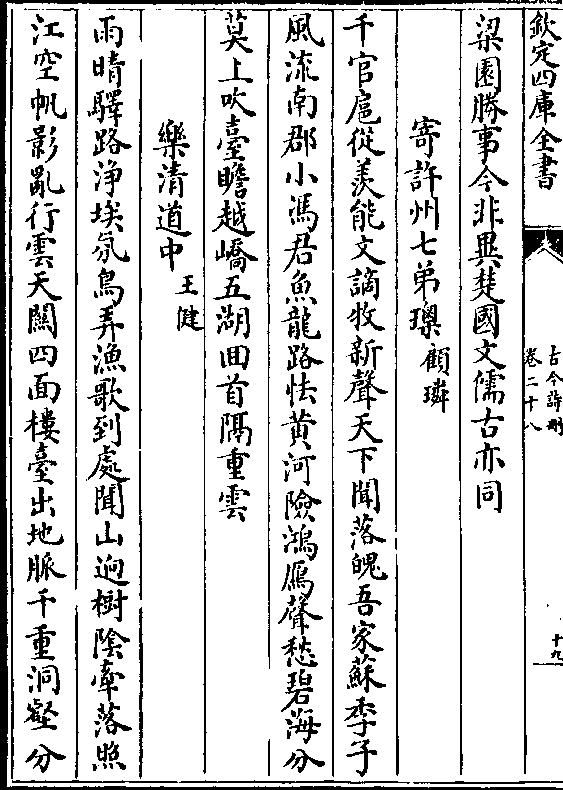 欽定四庫全書
古今詩刪
卷二十八
十九
梁園勝事今非異楚國文儒古亦同
寄許州七弟瓅
顧璘
千官扈從羡能文謫牧新聲天下聞落魄吾家蘇季子
風流南郡小馮君魚龍路怯黄河險鴻鴈聲愁碧海分
莫上吹臺瞻越嶠五湖囬首隔重雲
樂清道中
王健
雨晴驛路浄埃氛鳥弄漁歌到處聞山逈樹陰牽落照
江空帆影亂行雲天闗四面樓臺出地脈千重洞壑分